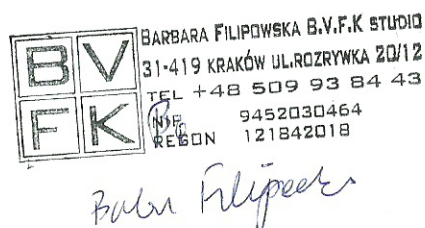 BV
FK
BARBARA FILIPOWSKA B.V.F.K STUDIO
31-419 KRAKÓW UL.ROZRYWKA 20/12
TEL +48 509 93 84 43
NIP 9452030464
REGON 121842018